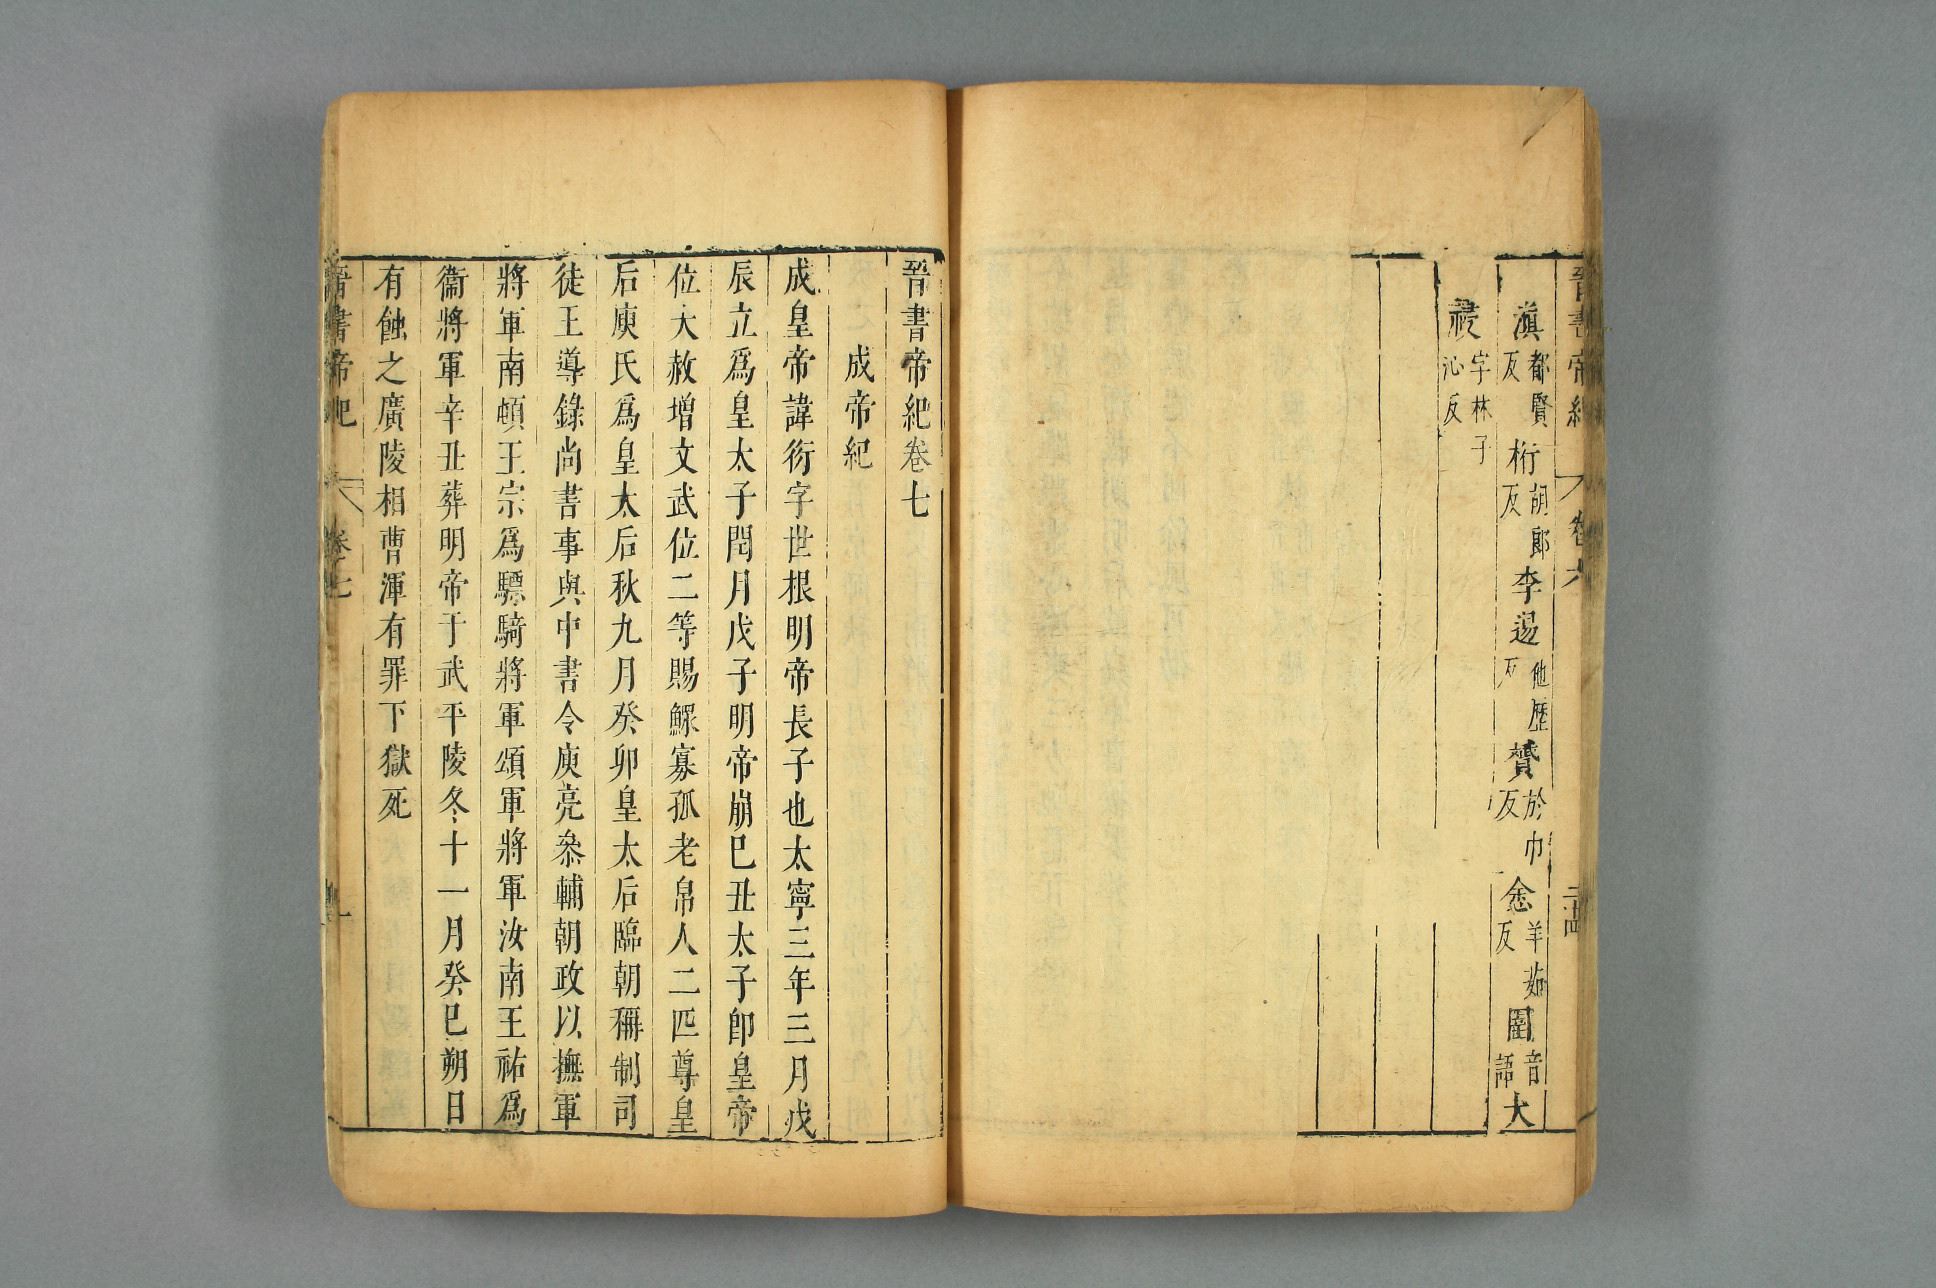 晉書帝紀 卷六 二十四
滇都賢反桁胡郎反李逷他歷反贇於巾反悆羊茹反圄音語犬
祲字林子沁反
晉書帝紀卷七
成帝紀
成皇帝諱衍字世根明帝長子也太寧三年三月戊
辰立爲皇太子閏月戊子明帝崩巳丑太子卽皇帝
位大赦增文武位二等賜鰥寡孤老帛人二匹尊皇
后庾氏爲皇太后秋九月癸卯皇太后臨朝稱制司
徒王導錄尚書事與中書令庾亮叅輔朝政以撫軍
將軍南頓王宗爲驃騎將軍領軍將軍汝南王祐爲
衞將軍辛丑葬明帝于武平陵冬十一月癸巳朔日
有蝕之廣陵相曹渾有罪下獄死
晉書帝紀 卷七 一